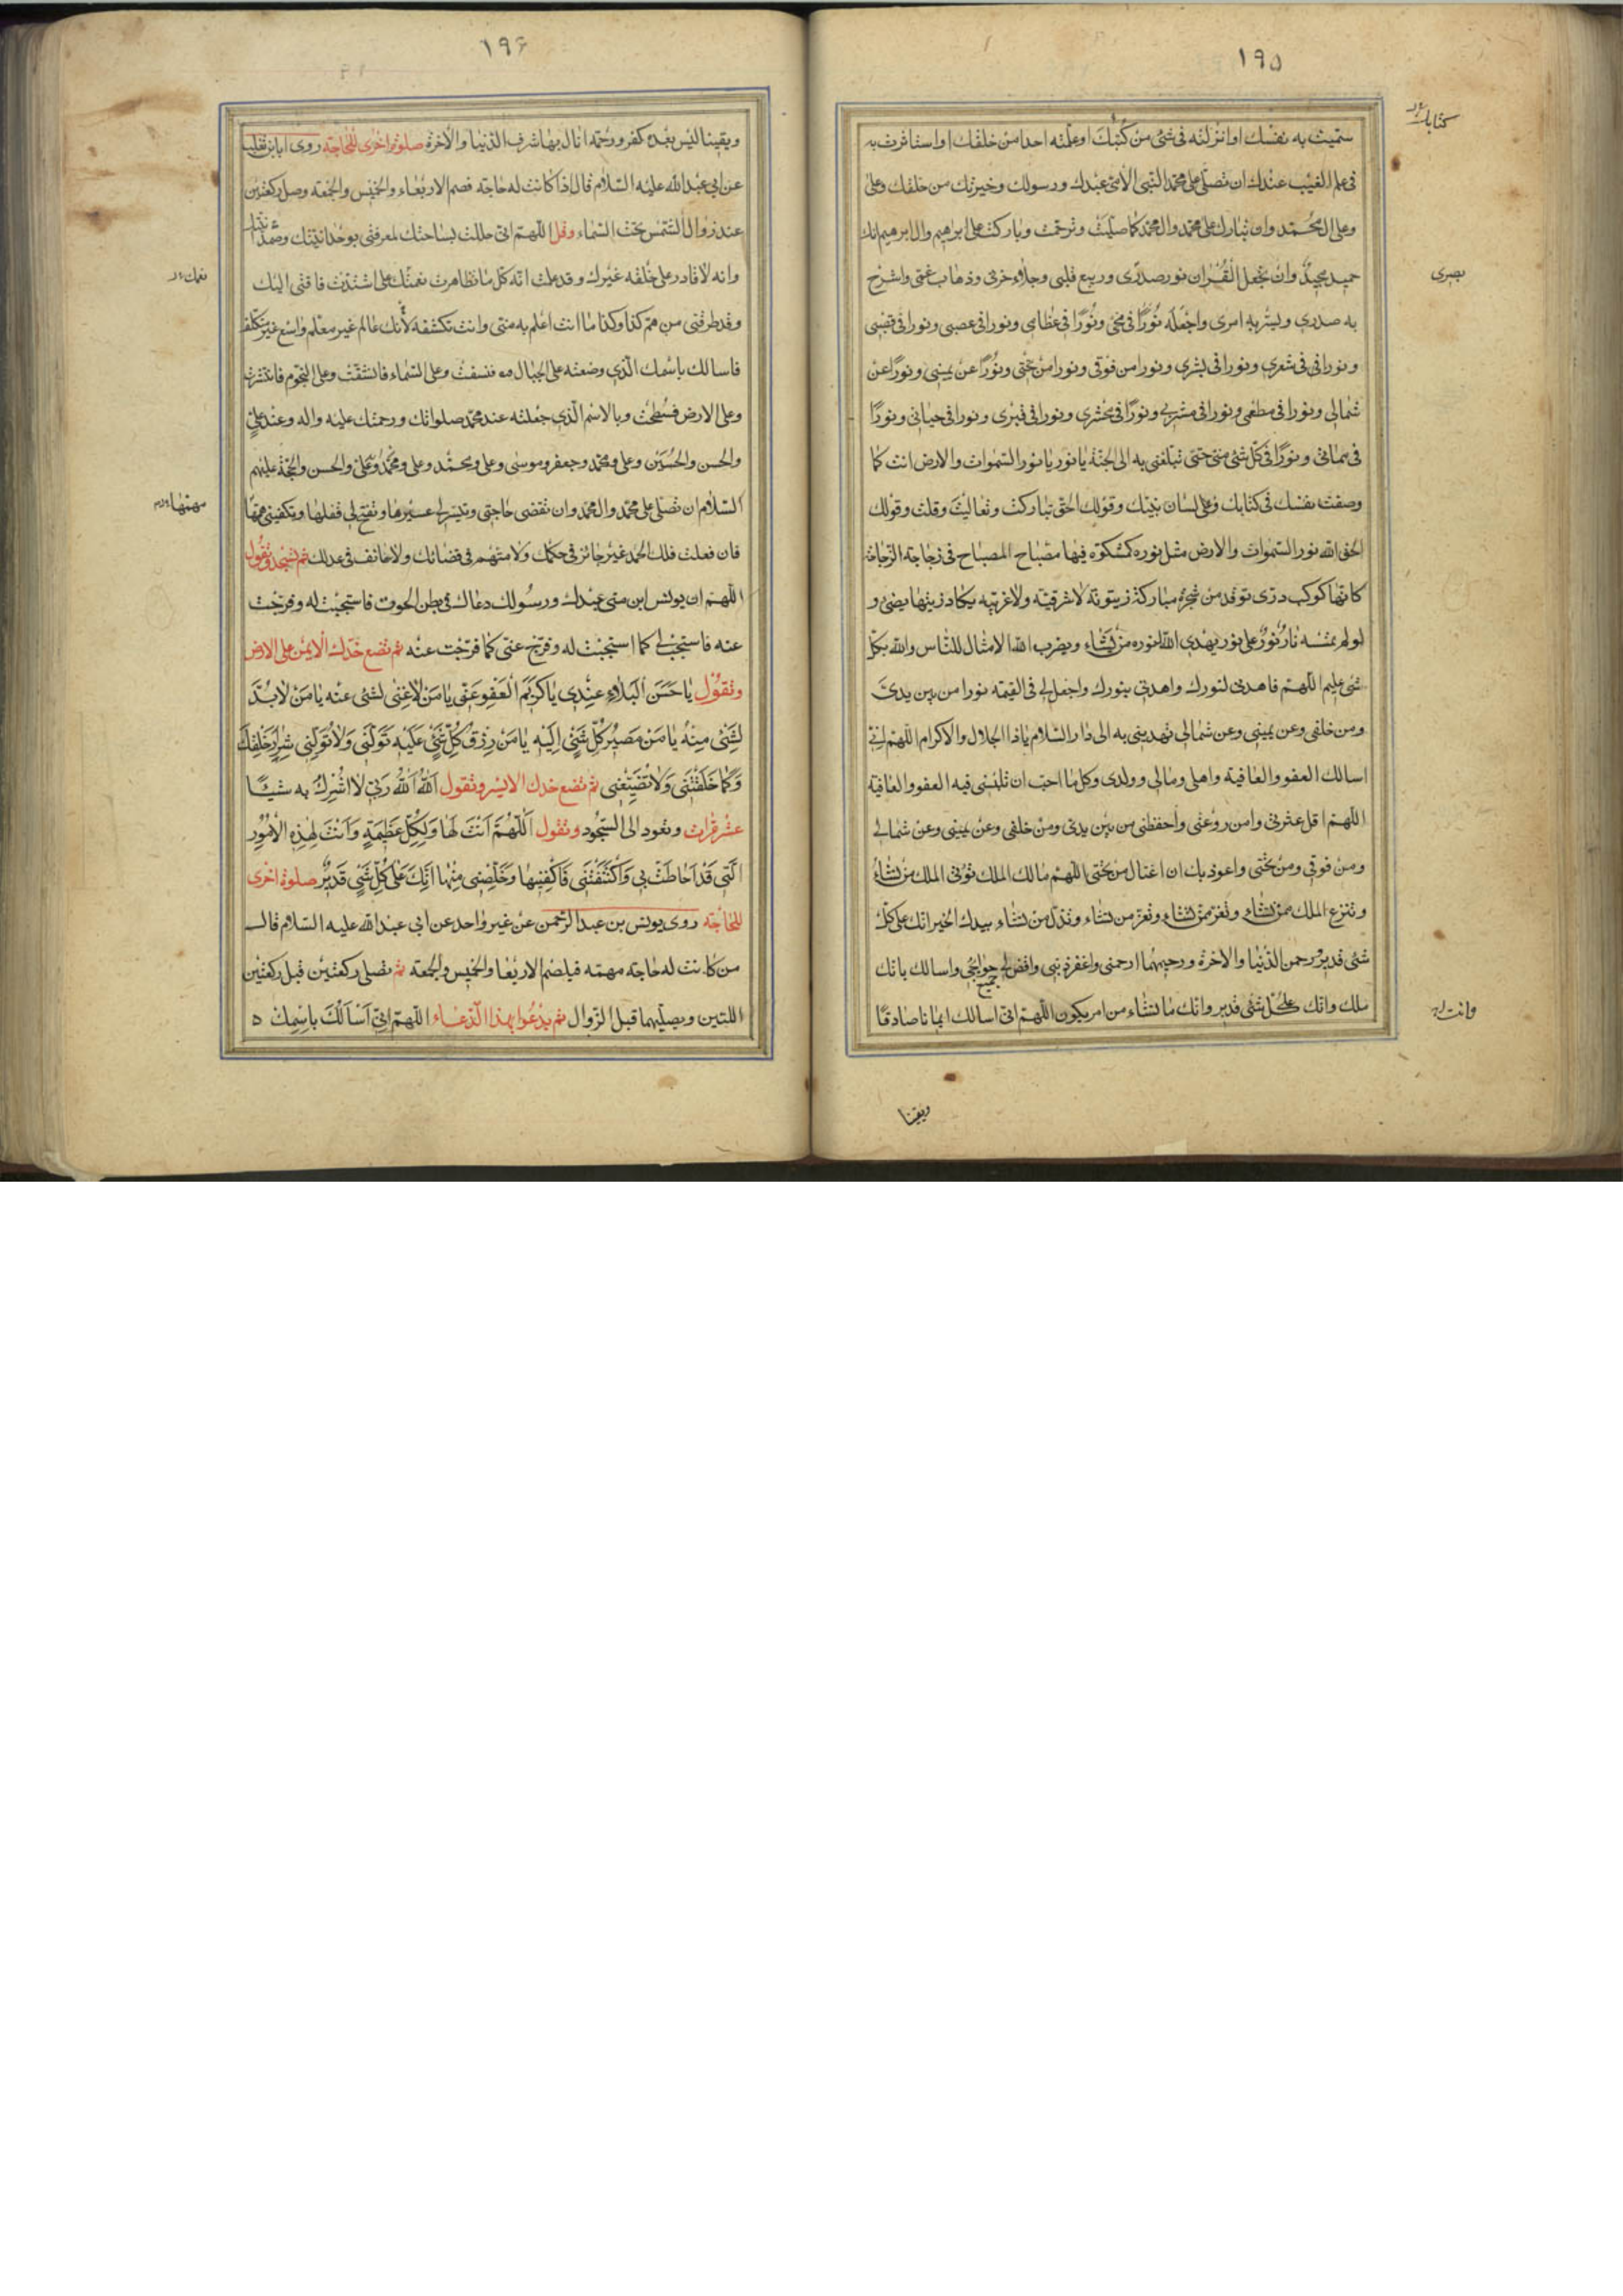 ١٩٥
سميت به نفسك او انزلته فى شئ من كتبك او علمته احدا من خلقك او استاثرت به
كتابك
فى علم الغيب عندك ان تصلى على محمد النبى الامى عبدك ورسولك وخيرتك من خلقك وعلى
وعلى ال محمد وان تبارك على محمد وال محمد كما صليت وترحمت وباركت على ابرهيم وال ابرهيم انك
حميد مجيد وان تجعل القران نور صدرى وربيع قلبى وجلاء حزنى وذهاب غمى واشرح
بصرى
به صدرى ويسر به امرى واجعله نورا فى مخى ونورا فى عظامى ونورا فى عصبى ونورا فى قصبى
ونورا فى شعرى ونورا فى بشرى ونورا من فوقى ونورا من تحتى ونورا عن يمينى ونورا عن
شمالى ونورا فى مطعمى ونورا فى مشربى ونورا فى محشرى ونورا فى قبرى ونورا فى حياتى ونورا
فى مماتى ونورا فى كل شئ منى حتى تبلغنى به الى الجنة يا نور يا نور السموات والارض انت كما
وصفت نفسك فى كتابك وعلى لسان نبيك وقولك الحق تباركت وتعاليت وقلت وقولك
الحق الله نور السموات والارض مثل نوره كمشكوة فيها مصباح المصباح فى زجاجة الزجاجة
كانها كوكب درى توقد من شجرة مباركة زيتونة لا شرقية ولا غربيه يكاد زيتها يضئ و
لولم تمسسه نار نور على نور يهدى الله لنوره من يشاء ويضرب الله الامثال للناس والله بكل
شئ عليم اللهم فاهدنى لنورك واهدنى بنورك واجعل لى فى القيمة نورا من بين يدى
ومن خلفى وعن يمينى وعن شمالى تهدينى به الى دار السلام ياذا الجلال والاكرام اللهم انى
اسالك العفو والعافية واهلى ومالى وولدى وكل ما احب ان تلبسنى فيه العفو والعافية
اللهم اقل عثرتى وامن روعتى واحفظنى من بين يدى ومن خلفى وعن يمينى وعن شمالى
ومن فوقى ومن تحتى واعوذ بك ان اغتال من تحتى اللهم مالك الملك تؤتى الملك من تشاء
وتنزع الملك ممن تشاء وتعز من تشاء وتذل من تشاء بيدك الخير انك على كل
شئ قدير رحمن الدنيا والاخرة ورحيمهما ارحمنى واغفر ذنبى واقض لى جميع حوائجى واسالك بانك
ملك وانك على كل شئ قدير وانك ما تشاء من امر يكون اللهم انى اسالك ايمانا صادقا
وانت
ويقينا
١٩۶
ويقينا ليس بعده كفر ورحمة انال بها شرف الدنيا والاخرة صلوة اخرى للحاجة روى ابان بن تغلب
عن ابى عبد الله عليه السلام قال اذا كانت له حاجة فصم الاربعاء والخميس والجمعة وصل ركعتين
عند زوال الشمس تحت السماء وقل اللهم انى حللت بساحتك لمعرفتى بوحدانيتك وصمدانيتك
وانه لا قادر على خلقه غيرك وقد علمت انه كل ما تظاهرت نعمتك على اشتدت فاقتى اليك
نعمك
وقد طرقنى من هم كذا وكذا ما انت اعلم به منى وانت تكشفه لانك عالم غير معلم واسع غير متكلف
فاسالك باسمك الذى وضعته على الجبال فنسفت وعلى السماء فانشقت وعلى النجوم فانتثرت
وعلى الارض فسطحت وبالاسم الذى جعلته عند محمد صلواتك ورحمتك عليه واله وعند على
والحسن والحسين وعلى ومحمد وجعفر وموسى وعلى ومحمد وعلى والحسن والحجة عليهم
السلام ان تصلى على محمد وال محمد وان تقضى حاجتى وتيسر لى عسيرها وتفتح لى قفلها وتكفينى همها
مهمها
فان فعلت فلك الحمد غير جائز فى حكمك ولا متهم فى قضائك ولا حائف فى عدلك ثم تسجد وتقول
اللهم ان يونس ابن متى عبدك ورسولك دعاك فى بطن الحوت فاستجبت له وفرجت
عنه فاستجب لى كما استجبت له وفرج عنى كما فرجت عنه ثم تضع خدك الايمن على الارض
وتقول يا حسن البلاء عندى يا كريم العفو عنى يا من لا غنى لشئ عنه يا من لا بد
لشئ منه يا من مصير كل شئ اليه يا من رزق كل شئ عليه تولنى ولا تولنى شرار خلقك
وكما خلقتنى ولا تضيعنى ثم تضع خدك الايسر وتقول الله الله ربى لا اشرك به شيئا
عشر مرات وتعود الى السجود وتقول اللهم انت لها ولكل عظيمة وانت لهذه الامور
التى قد احاطت بى واكتنفتنى فاكفنيها وخلصنى منها انك على كل شئ قدير صلوة اخرى
للحاجة روى يونس بن عبد الرحمن عن غير واحد عن ابى عبد الله عليه السلام قال
من كانت له حاجة مهمة فيلصم الاربعا والخميس والجمعة ثم تصلى ركعتين قبل ركعتين
اللتين ويصليهما قبل الزوال ثم يدعوا بهذا الدعاء اللهم انى اسالك باسمك ه